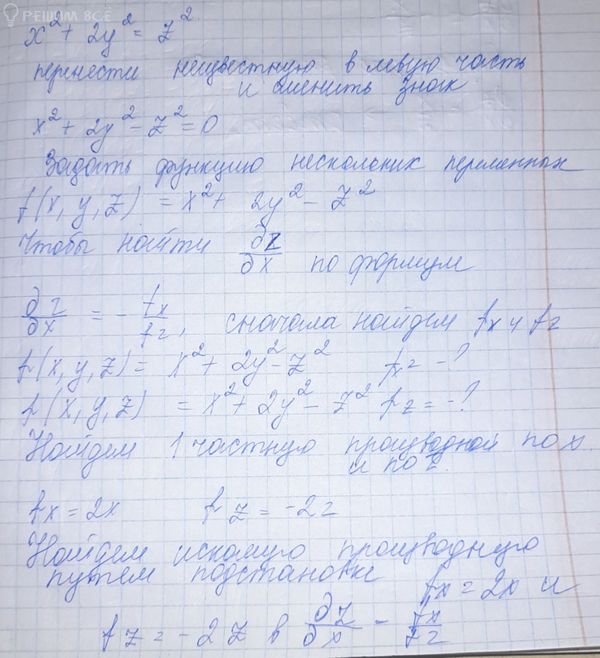 РЕШИМ ВСЁ
x² + 2y² = z²
перенести неизвестную в левую часть
и сменить знак
x² + 2y² - z² = 0
Задать функцию нескольких переменных
f(x, y, z) = x² + 2y² - z²
Чтобы найти ∂z/∂x по формуле
∂z/∂x = - fx/fz, сначала найдем fx и fz
f(x, y, z) = x² + 2y² - z² fz -?
f(x, y, z) = x² + 2y² - z² fz = -?
Найдем 1 частную производной по x
и по z.
fx = 2x fz = -2z
Найдем искомую производную
путем подстановки fx = 2x и
fz = -2z в ∂z/∂x - fx/fz